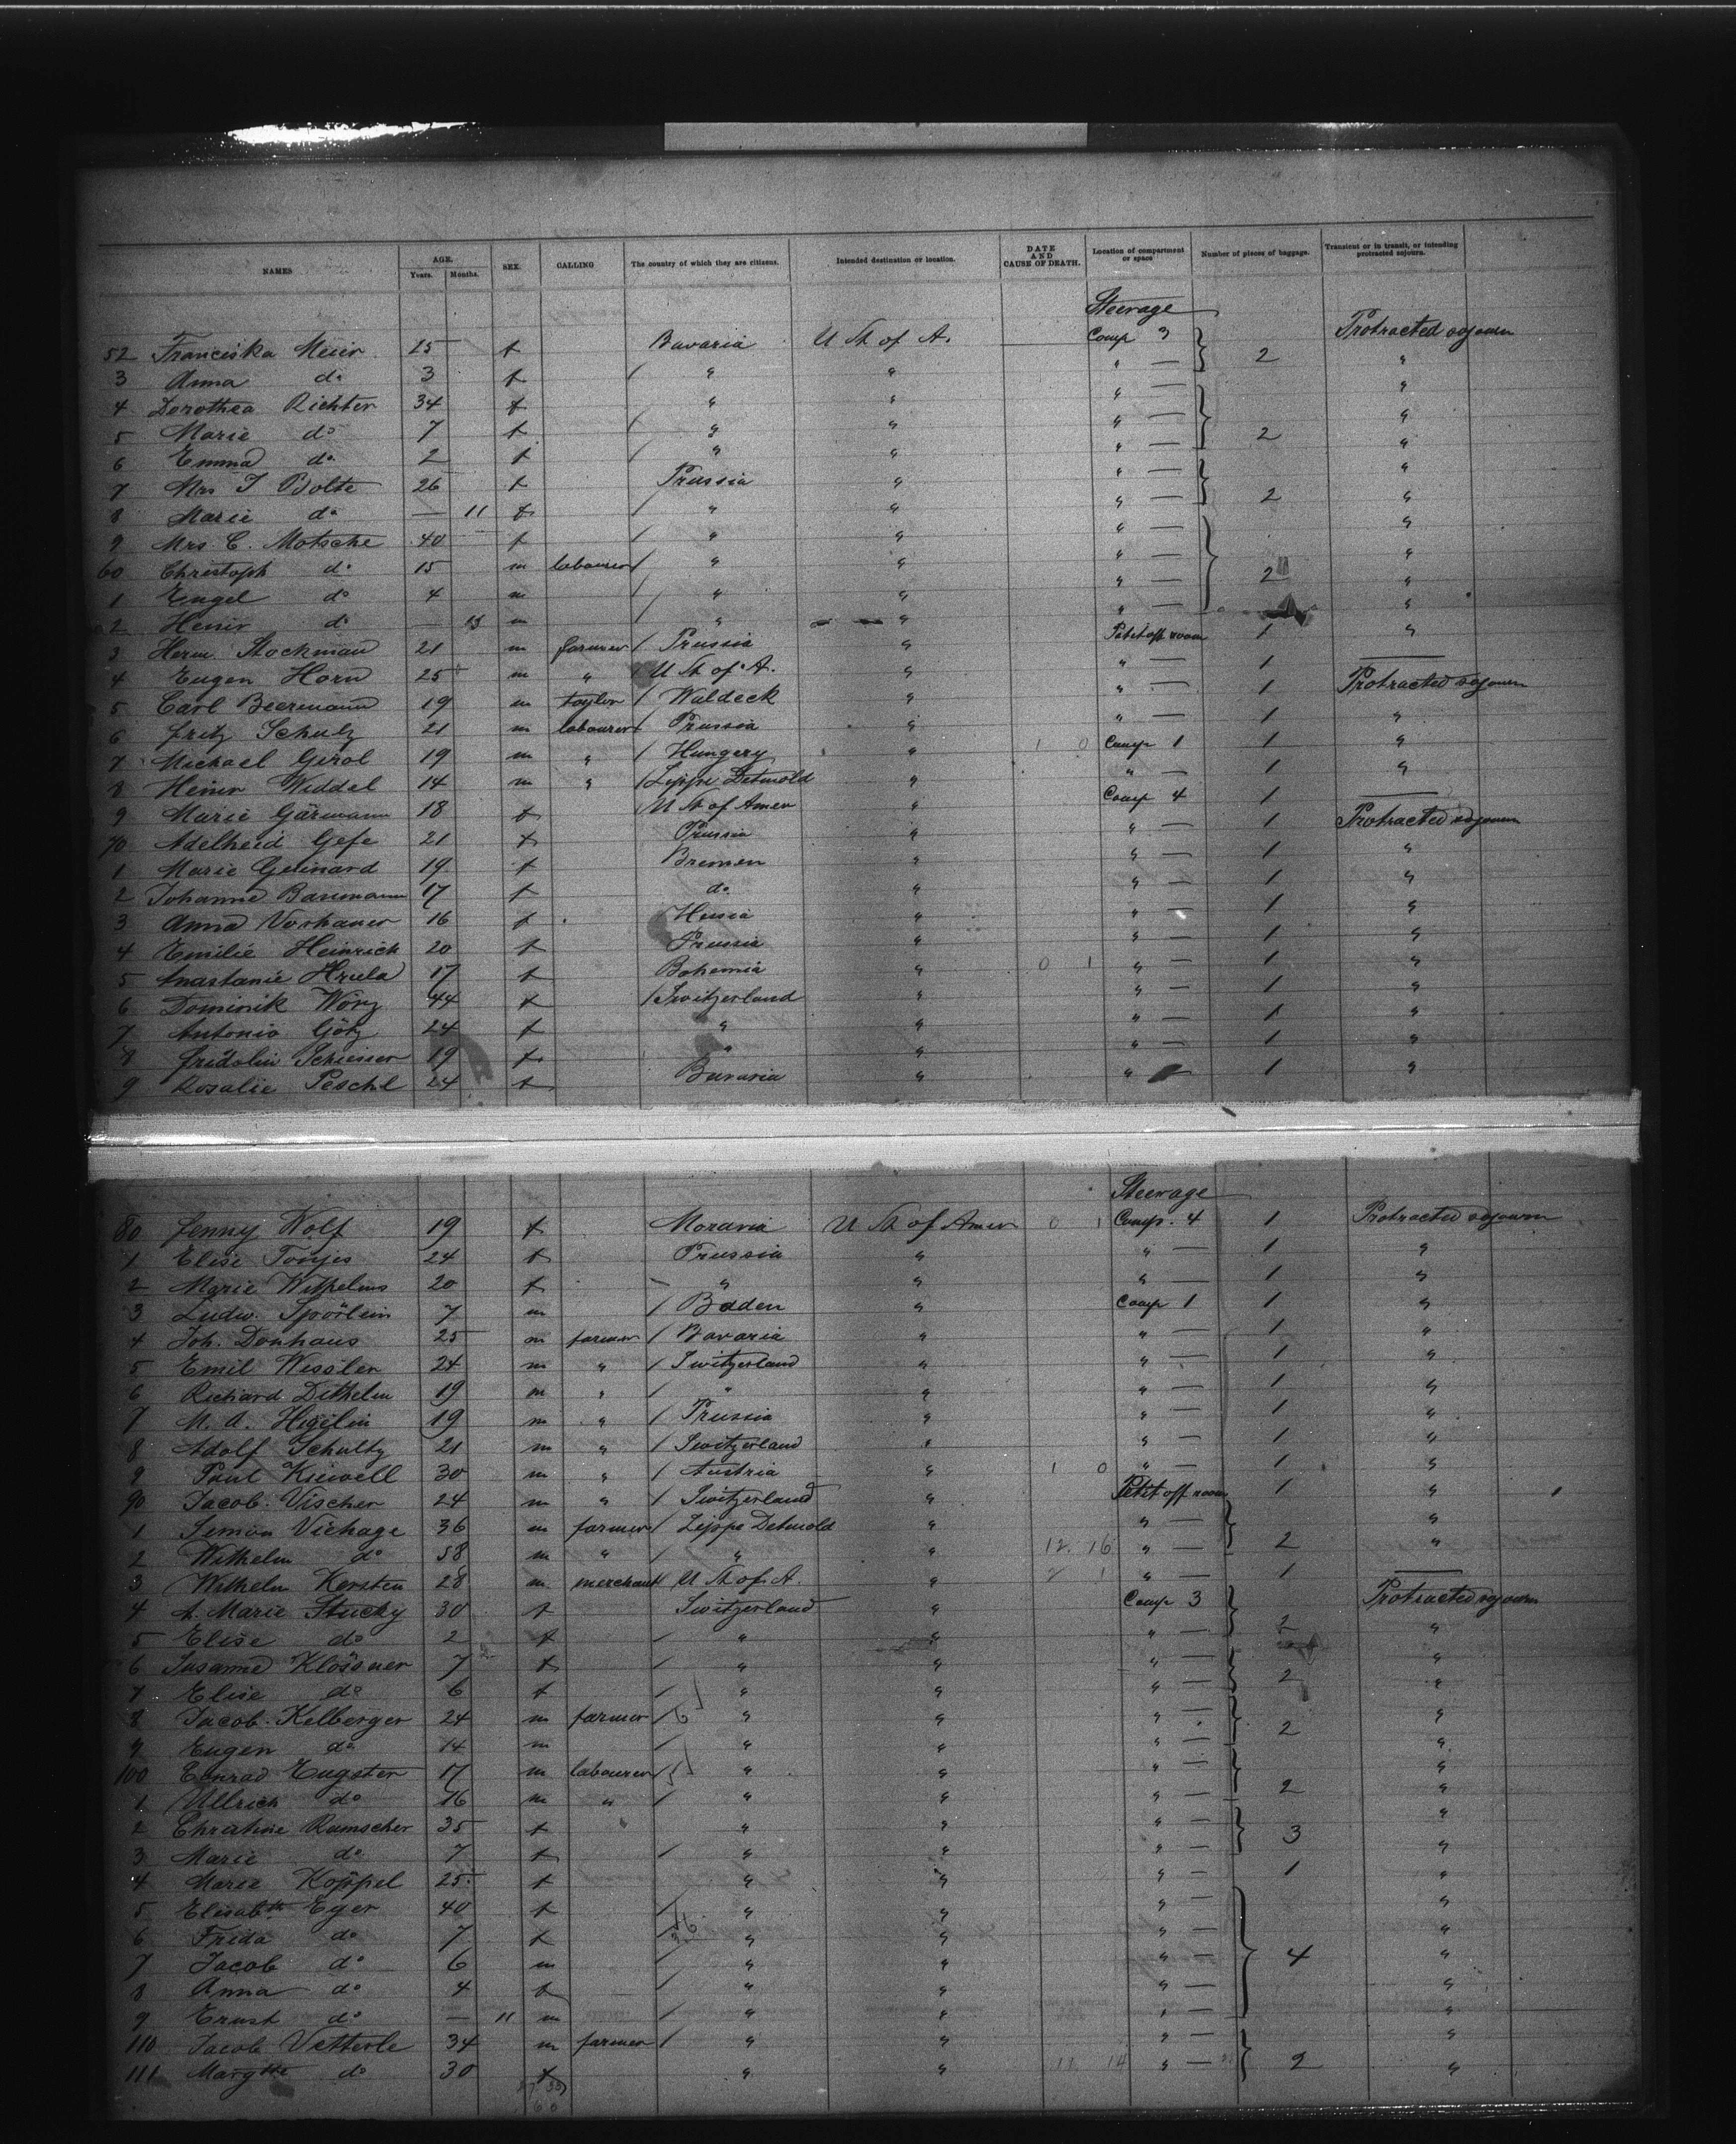 NAMES AGE. Years. Months. SEX. CALLING The country of which they are citizens. Intended destination or location. DATE AND CAUSE OF DEATH. Location of compartment or space Number of pieces of baggage. Transient or in transit, or intending protracted sojourn.
Steerage
52 Franciska Meier 25 f Bavaria U St of A. Comp 3 Protracted sojourn
3 Anna do 3 f " " " — 2 "
4 Dorothea Richter 34 f " " " — "
5 Marie do 7 f " " " — 2 "
6 Emma do 2 f " " " — "
7 Mrs I Bolte 26 f Prussia " " — "
8 Marie do — 11 f " " " — 2 "
9 Mrs. C. Motsche 40 f " " " — "
60 Christoph do 15 m labourer " " " — "
1 Engel do 4 m " " " — 2 "
2 Heinr do — m " " " — "
3 Herm. Stockman 21 m farmer Prussia " Petit off room 1 "
4 Eugen Horn 25 m " U St of A. " " — 1 —
5 Carl Beermann 19 m taylor Waldeck " " — 1 Protracted sojourn
6 Fritz Schulz 21 m labourer Prussia " " — 1 "
7 Michael Gerol 19 m " Hungery " 1 0 Comp 1 1 "
8 Heinr Widdel 14 m " Lippe Detmold " " — 1 "
9 Marie Gärmann 18 f U St of Amer " Comp 4 1 —
70 Adelheid Gefe 21 f Prussia " " — 1 Protracted sojourn
1 Marie Geinard 19 f Bremen " " — 1 "
2 Johanne Baumann 17 f do " " — 1 "
3 Anna Vorhauer 16 f " " — 1 "
4 Emilie Heinrich 20 f Prussia " " — 1 "
5 Anastanie Hrula 17 f Bohemia " 0 1 " — 1 "
6 Dominik Wörz 44 f Switzerland " " — 1 "
7 Antonio Götz 24 f " " " — 1 "
8 Fridolin Schiesser 19 f " " " — 1 "
9 Rosalie Peschl 24 f Bavaria " " — 1 "
Steerage
80 Jenny Wolf 19 f Moravia U St of Amer 0 1 Comp. 4 1 Protracted sojourn
1 Elise Tonjes 24 f Prussia " " — 1 "
2 Marie Wilhelms 20 f " " " — 1 "
3 Ludw. Spörlein 7 m Baden " Comp 1 1 "
4 Joh. Donhaus 25 m farmer Bavaria " " — 1 "
5 Emil Wessler 24 m " Switzerland " " — 1 "
6 Richard Dithelm 19 m " " " " — 1 "
7 M. A. Higelin 19 m " Prussia " " — 1 "
8 Adolf Schultz 21 m " Switzerland " " — 1 "
9 Paul Kiewell 30 m " Austria " 1 0 " — 1 "
90 Jacob Vischer 24 m " Switzerland " Petit off room 1 "
1 Simon Vichage 36 m farmer Lippe Detmold " " — "
2 Wilhelm do 58 m " " " 12. 16 " — 2 "
3 Wilhelm Kersten 28 m merchant U St of A. " 2 1 " — 1 —
4 A. Marie Stucky 30 f Switzerland " Comp 3 Protracted sojourn
5 Elise do 2 f " " " — 2 "
6 Susanne Klössner 7 f " " " — "
7 Elise do 6 f " " " — 2 "
8 Jacob Kelberger 24 m farmer " " " — "
9 Eugen do 14 m " " " — 2 "
100 Conrad Eugster 17 m labourer " " " — "
1 Ullrich do 16 m " " " " — 2 "
2 Christine Rumscher 35 f " " " — "
3 Marie do 7 f " " " — 3 "
4 Maria Koppel 25 f " " " — 1 "
5 Elisabth. Eger 40 f " " " — "
6 Frida do 7 f " " " — "
7 Jacob do 6 m " " " — 4 "
8 Anna do 4 f " " " — "
9 Ernst do — 11 m " " " — "
110 Jacob Vetterle 34 m farmer " " " — "
111 Margthe do 30 f " " 11 14 " — 2 "